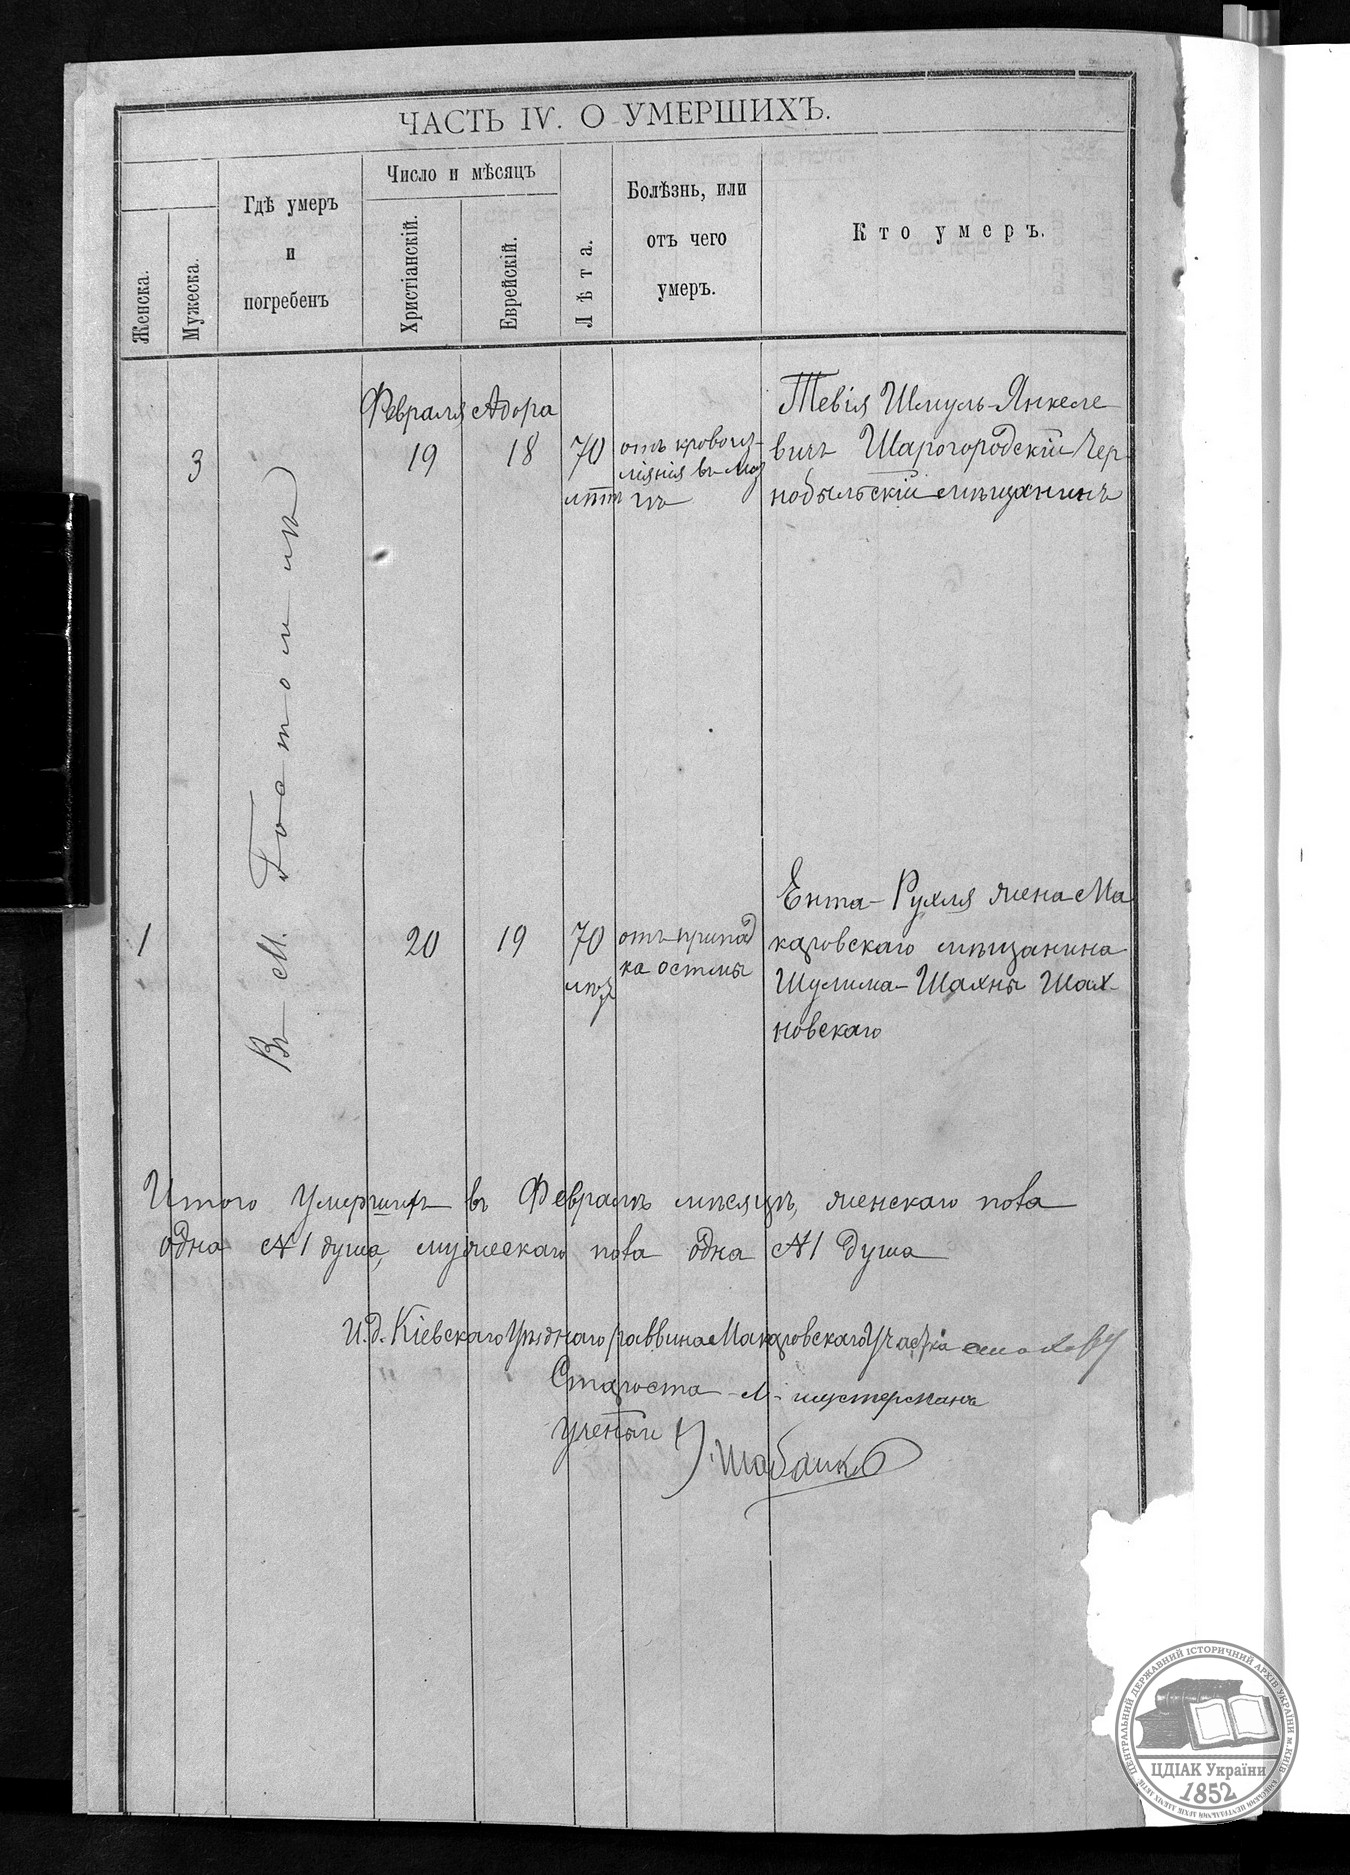 ЧАСТЬ IV. О УМЕРШИХЪ.
Женска.
Мужеска.
Гдѣ умеръ
и
погребенъ
Число и мѣсяцъ
Христіанскій.
Еврейскій.
Лѣта.
Болѣзнь, или
отъ чего
умеръ.
Кто умеръ.
Въ М. Гостомлѣ
Февраля Адора
3
19
18
70
лѣтъ
отъ кровоиз-
ліянія въ моз
гъ
Тевія Шмуль-Янкеле
вичъ Шарогородскій Чер
нобыльскій мѣщанинъ
1
20
19
70
лѣтъ
отъ припад
ка остмы
Ента-Рухля жена Ма
каровскаго мѣщанина
Шулима-Шахны Шах-
новскаго
Итого умершихъ въ Февралѣ мѣсяцѣ, женскаго пола
одна №1 душа, мужескаго пола одна №1 душа
И.д. Кіевскаго Уѣзднаго раввина Макаровскаго Участка
Староста М. Шустерманъ
Ученый
ЦЕНТРАЛЬНИЙ ДЕРЖАВНИЙ ІСТОРИЧНИЙ АРХІВ УКРАЇНИ м.КИЇВ
ЦДІАК України
1852